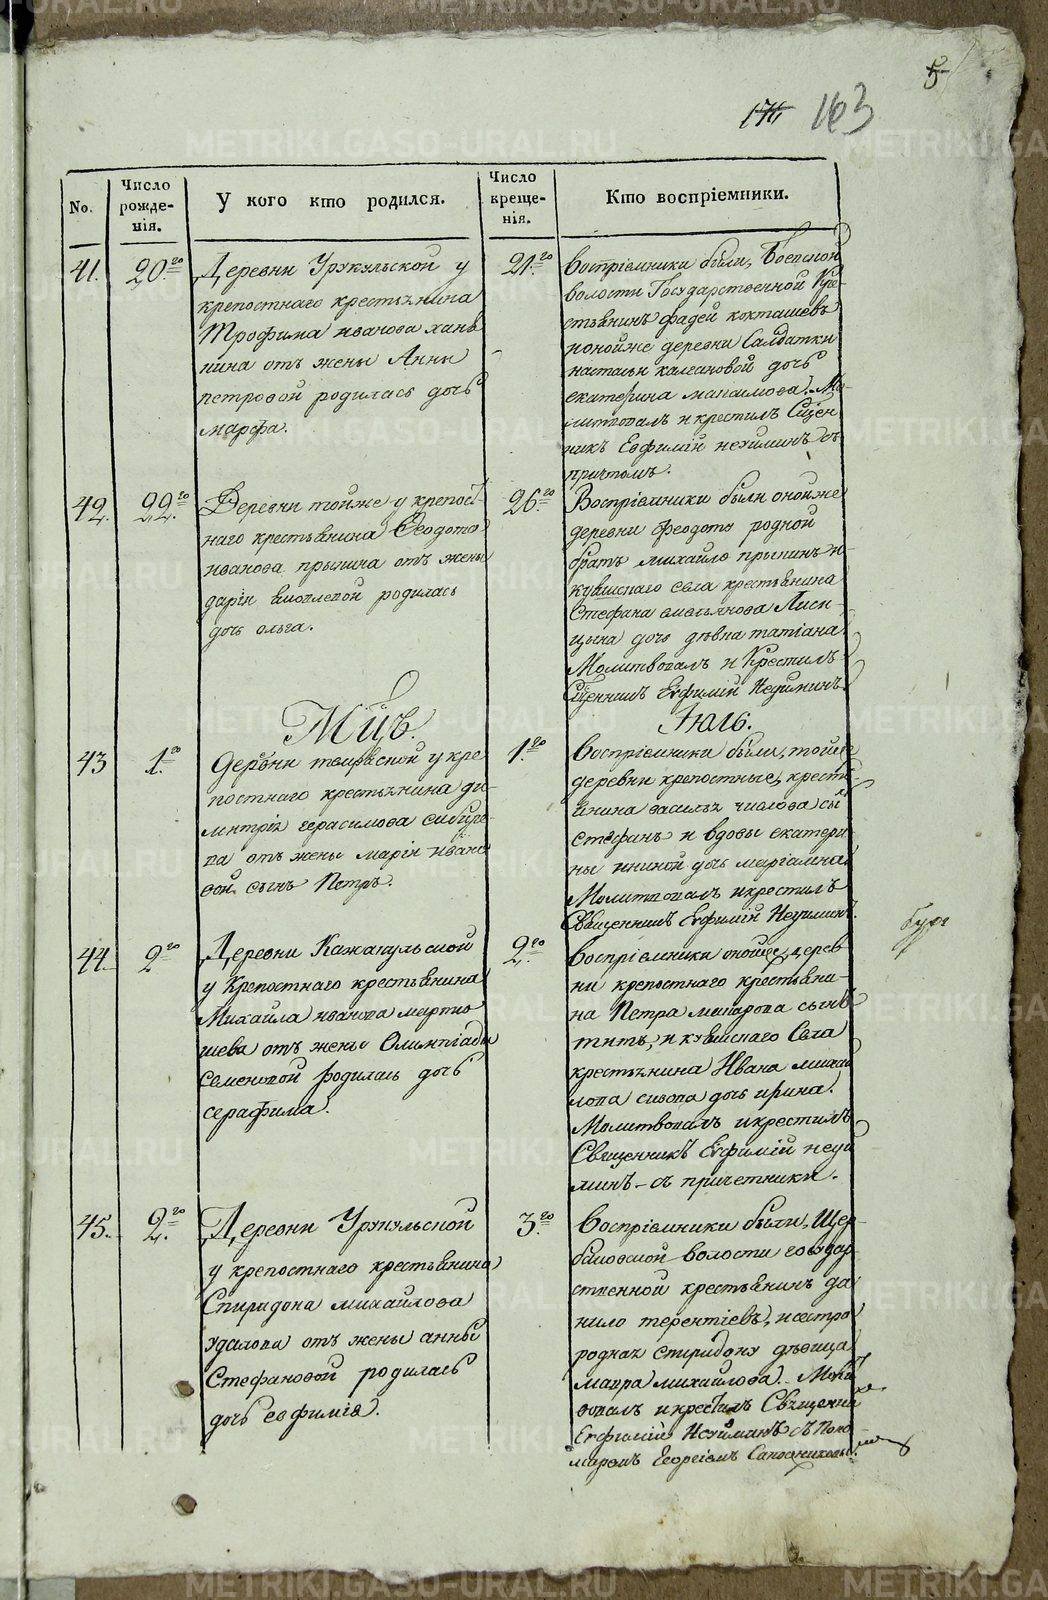 METRIKI.GASO-URAL.RU
5
171 163
No.
Число рожде-нія.
У кого кто родился.
Число креще-нія.
Кто воспріемники.
41.
20.го
Деревни Урукульской у
крепостнаго крестьянина
Трофима иванова
нина отъ жены Анны
петровой родилась дочь
марфа.
21.го
Воспріемники были,
волости Государственной Кре-
стьянинъ фадей
ионойже деревни Салдатки
дочь
екатерина Мо-
литвовалъ и крестилъ Сщен
никъ Евфимій неуйминъ съ
причтомъ.
42.
22.го
Деревни тойже у крепост-
наго крестьянина Феодота
иванова прыкина отъ жены
даріи родилась
дочь ольга.
26.го
Воспріемники были онойже
деревни феодота родной
братъ михайло и
села крестьянина
Стефана емельянова Лиси-
цына дочь девка татіана
Молитвовалъ и Крестилъ
Сщенникъ Евфимій Неуйминъ.
Мцъ. Іюль.
43
1.го
Деревни у кре
постнаго крестьянина ди-
митрія герасимова
ва отъ жены маріи ивано
вой сынъ Петръ.
1.го
Воспріемники были, тойже
деревни крепостные, кресть
янина василья числова сы
стефанъ и вдовы екатери
ны дочь маріамна
Молитвовалъ икрестилъ
Священникъ Евфимій Неуйминъ.
44.
2.го
Деревни Кажакульской
у Крепостнаго крестьянина
Михайла иванова
шева отъ жены Олимпіады
Семеновой родилась дочь
серафима.
2.го
Воспріемники онойже дерев
ни крепостнаго крестьяни-
на Петра макарова сынъ
титъ, и Села
крестьянина Ивана михай
лова сизова дочь ирина.
Молитвовалъ икрестилъ
Священникъ Евфимій неуй
минъ - съ причетники.
45.
2.го
Деревни Урукульской
у крепостнаго крестьянина
Спиридона михайлова
удалова отъ жены анны
Стефановой родилась
дочь евфимія.
3.го
Воспріемники были, Щер-
баковской волости государ
ственной крестьянинъ да
нило терентіевъ, исестра
родная спиридону девица
мавра михайлова. Молит
вовалъ икрестилъ Священни
Евфимій Неуйминъ съ Поно
маремъ Георгіемъ Сапожниковымъ